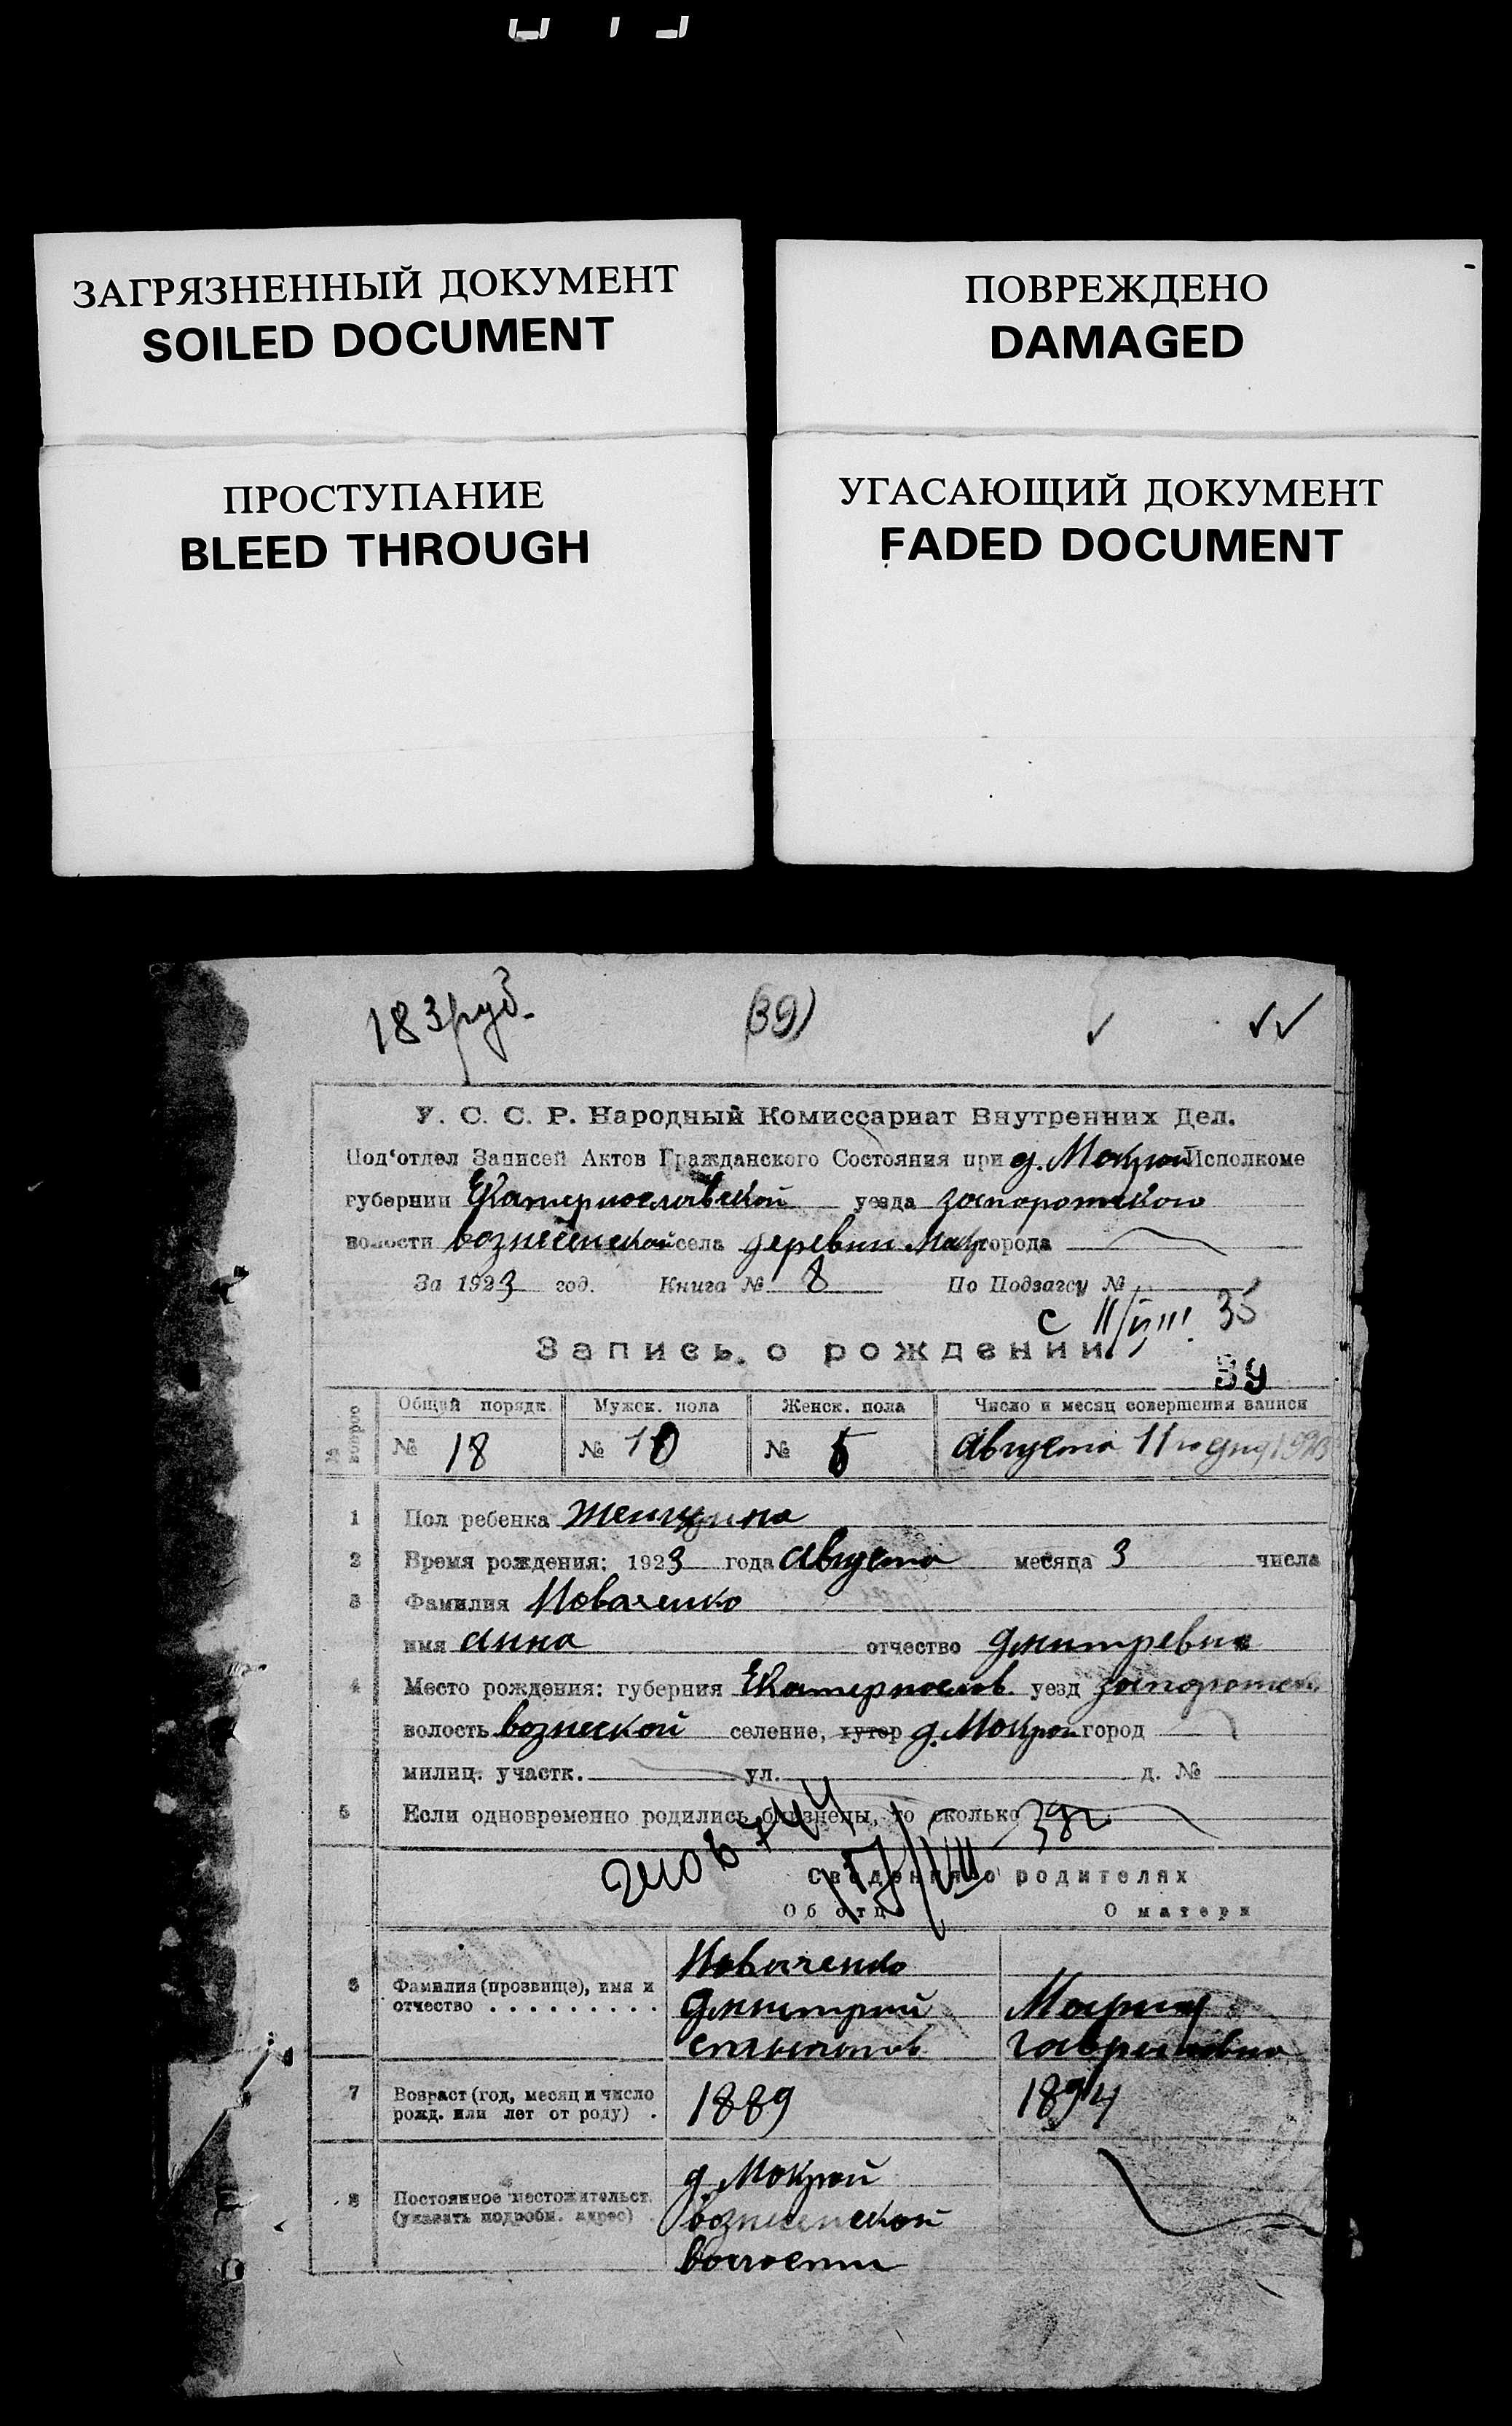 ЗАГРЯЗНЕННЫЙ ДОКУМЕНТ
SOILED DOCUMENT
ПРОСТУПАНИЕ
BLEED THROUGH
ПОВРЕЖДЕНО
DAMAGED
УГАСАЮЩИЙ ДОКУМЕНТ
FADED DOCUMENT
183 руб. 39)
У. С. С. Р. Народный Комиссариат Внутренних Дел.
Под'отдел Записей Актов Гражданского Состояния при д. Мокрой Исполкоме
губернии Екатеринославской уезда запорожского
волости вознесенской села деревни Мокр города
За 1923 год. Книга № 8 По Подзагсу №
с 11/VIII 35
Запись о рождении
39
№ вопрос Общий порядк. Мужск. пола Женск. пола Число и месяц совершения записи
№ 18 № 10 № Августа 11го дня 1923
1 Пол ребенка женщина
2 Время рождения: 1923 года Августа месяца 3 числа
3 Фамилия Коваленко
имя анна отчество дмитревна
4 Место рождения: губерния Екатеринослов. уезд запорожск.
волость вознеской селение, хутор д. Мокрой город
милиц. участк. ул. д. №
5 Если одновременно родились близнецы, то сколько
Сведения о родителях
Об отце О матери
6 Фамилия (прозвище), имя и отчество . . . . . . . . .
Коваленко
дмитрий Мария
гавриловна
7 Возраст (год, месяц и число рожд. или лет от роду) . 1889 1894
8 Постоянное местожительст. (указать подробн. адрес) .
д. Мокрой
вознесенской
волости